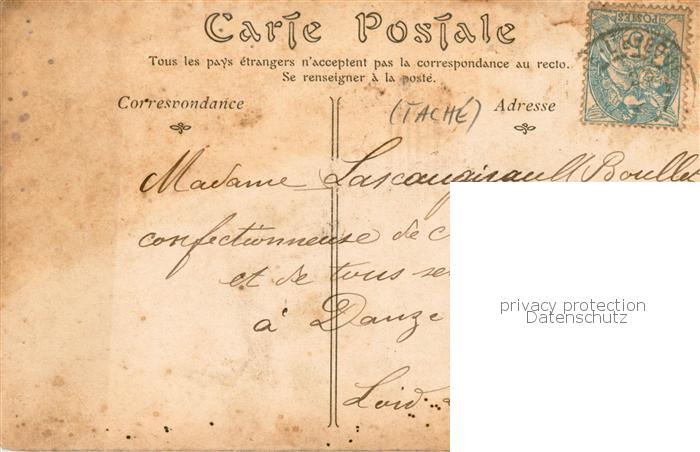 Carte Postale
Tous les pays étrangers n'acceptent pas la correspondance au recto.
Se renseigner à la poste.
Correspondance
(TACHÉ)
Adresse
POSTES
Madame Boullet
confectionneuse de
et de tous
à Danzé
Loir
privacy protection
Datenschutz